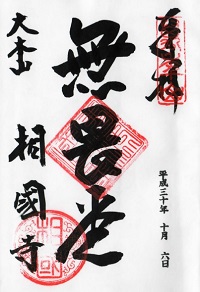 奉拝
平成三十年 十月 六日
無畏堂
大本山
相國寺